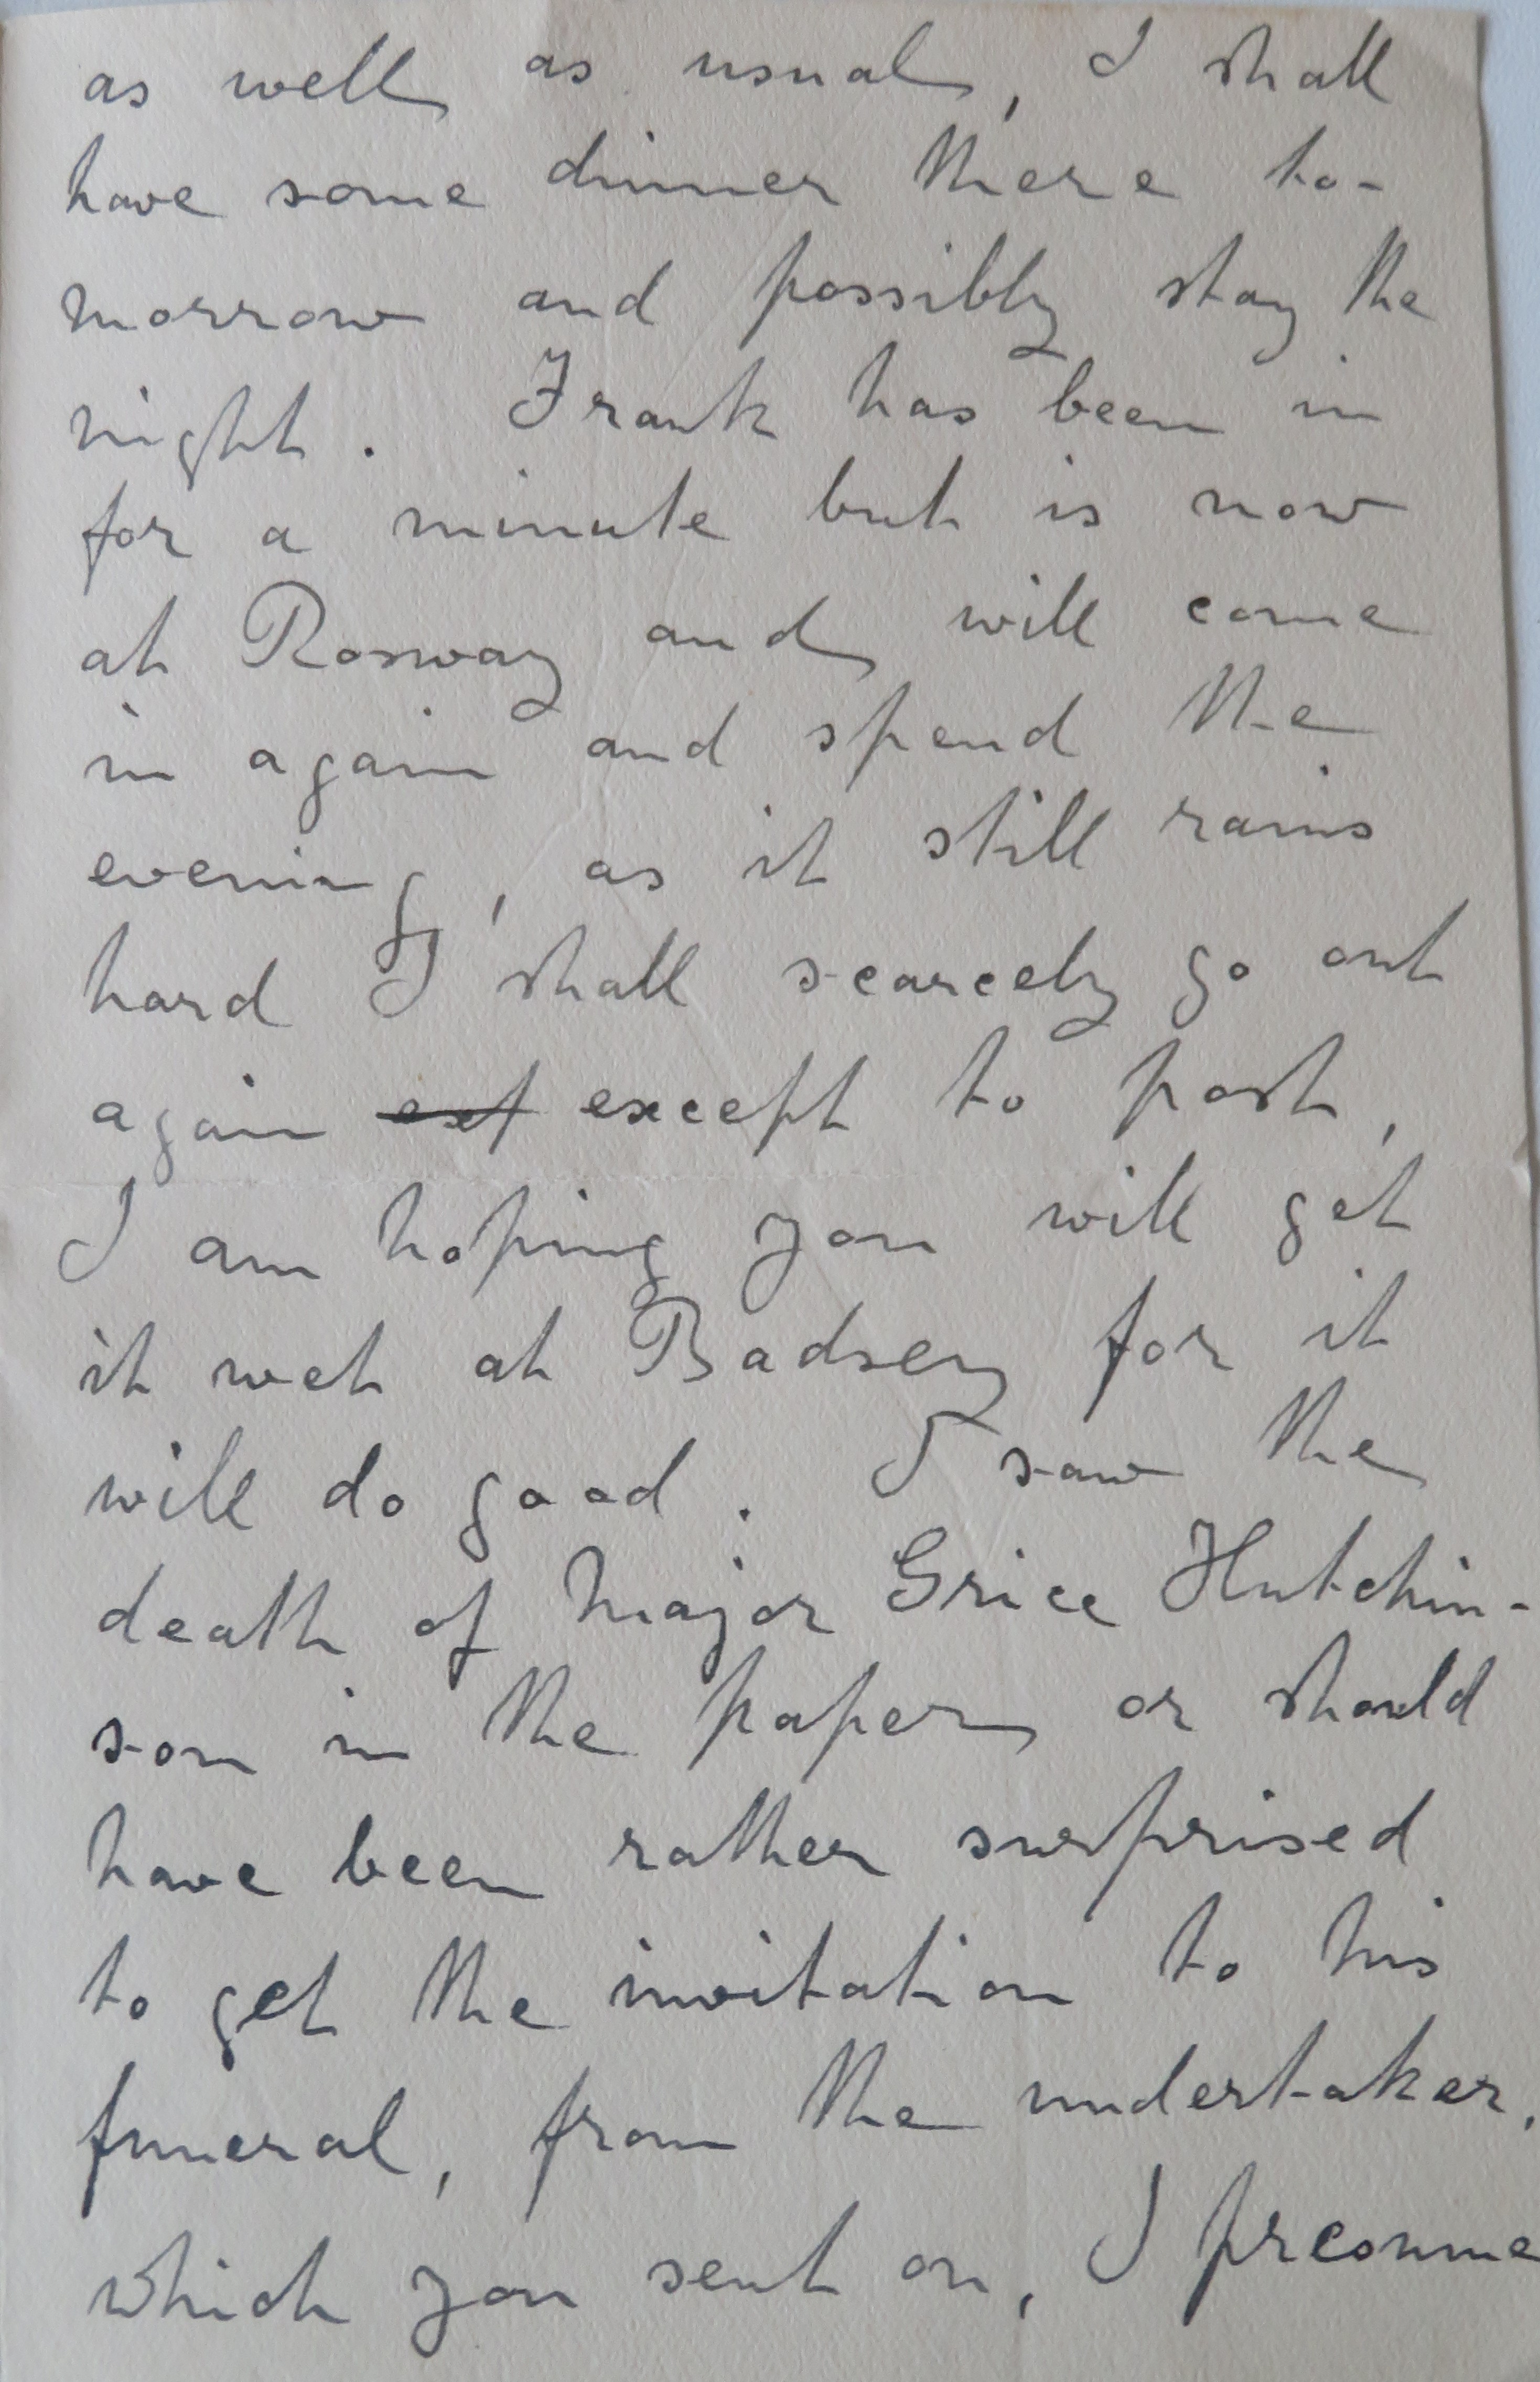 as well as usual, I shall
have some dinner there to-
morrow and possibly stay the
night. Frank has been in
for a minute but is now
at Rosway and will come
in again and spend the
evening, as it still rains
hard I shall scarcely go out
again exp except to post,
I am hoping you will get
it wet at Badsey for it
will do good. I saw the
death of Major Grice Hutchin-
son in the paper or should
have been rather surprised
to get the invitation to his
funeral, from the undertaker,
which you sent on, I presume